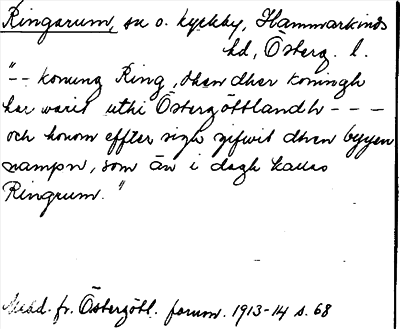 Ringarum, sn o. kyrkby, Hammarkinds
hd, Österg. l.
"-- konung Ring, then ther koningh
har warit uthi Östergöttlandh - - -
och honom effter sigh gifwit then byyen
nampn, som än i dagh kallas
Ringrum."
Medd. fr. Östergötl. fornm. 1913-14 s. 68